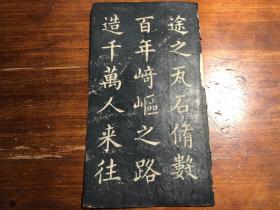 途之瓦石脩數
百年﨑嶇之路
造千萬人来往